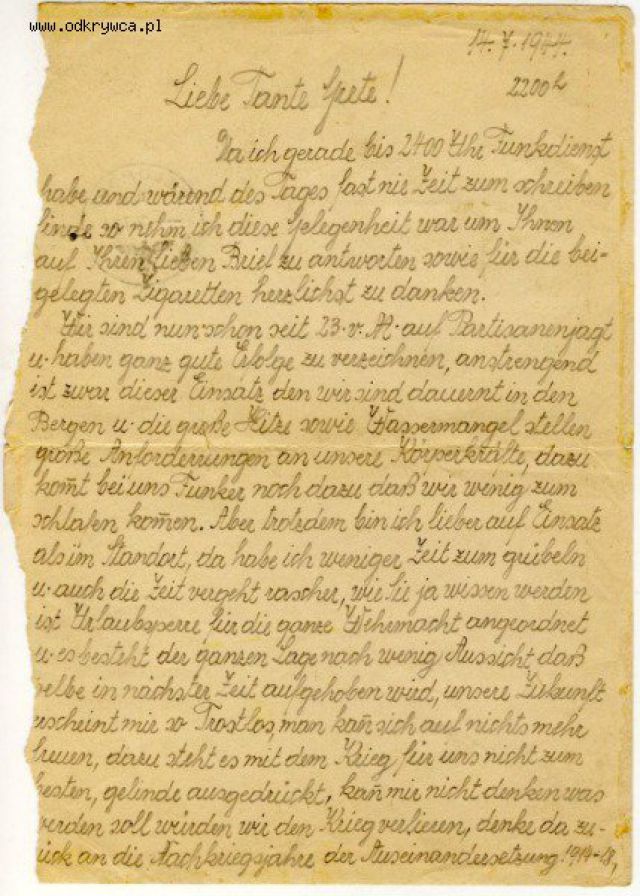 www.odkrywca.pl
14.7.1944.
2200h
Liebe Tante Grete!
Da ich gerade bis 2400 Uhr Funkdienst
habe und wärend des Tages fast nie Zeit zum schreiben
finde so nehm̄ ich diese Gelegenheit war um Ihnen
auf Ihren lieben Brief zu antworten sowie für die bei-
gelegten Zigaretten herzlichst zu danken.
Wir sind nun schon seit 23.v.M. auf Partisanenjagt
u. haben ganz gute Erfolge zu verzeichnen, anstrengend
ist zwar dieser Einsatz den wir sind dauernt in den
Bergen u. die große Hitze sowie Wassermangel stellen
große Anforderrungen an unsere Körperkräfte, dazu
kom̄t bei uns Funker noch dazu daß wir wenig zum
schlafen kom̄en. Aber trotzdem bin ich lieber auf Einsatz
als im Standort, da habe ich weniger Zeit zum grübeln
u. auch die Zeit vergeht rascher, wie Sie ja wissen werden
ist Urlaubsperre für die ganze Wehrmacht angeordnet
u. es besteht der ganzen Lage nach wenig Aussicht daß
selbe in nächster Zeit aufgehoben wird, unsere Zukunft
erscheint mir so Trostlos, man kan̄ sich auf nichts mehr
freuen, dazu steht es mit dem Krieg für uns nicht zum
besten, gelinde ausgedrückt, kan̄ mir nicht denken was
werden soll würden wir den Krieg verlieren, denke da zu-
rück an die Nachkriegsjahre der Auseinandersetzung 1914-18,